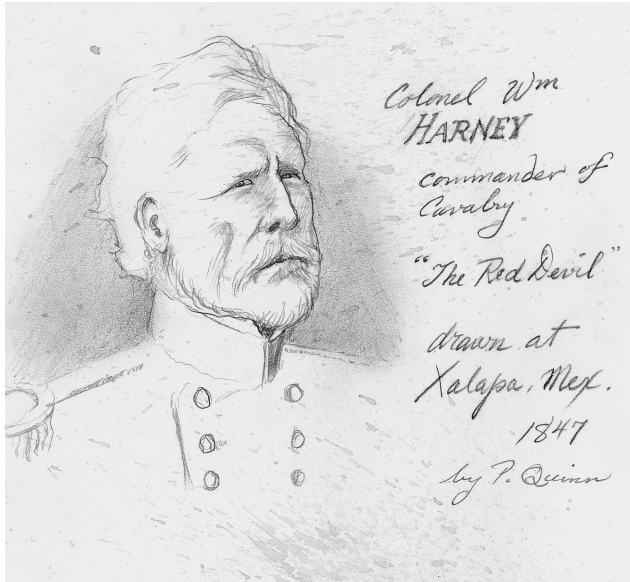 Colonel Wm
HARNEY
commander of
Cavalry
"The Red Devil"
drawn at
Xalapa, Mex.
1847
by P. Quinn